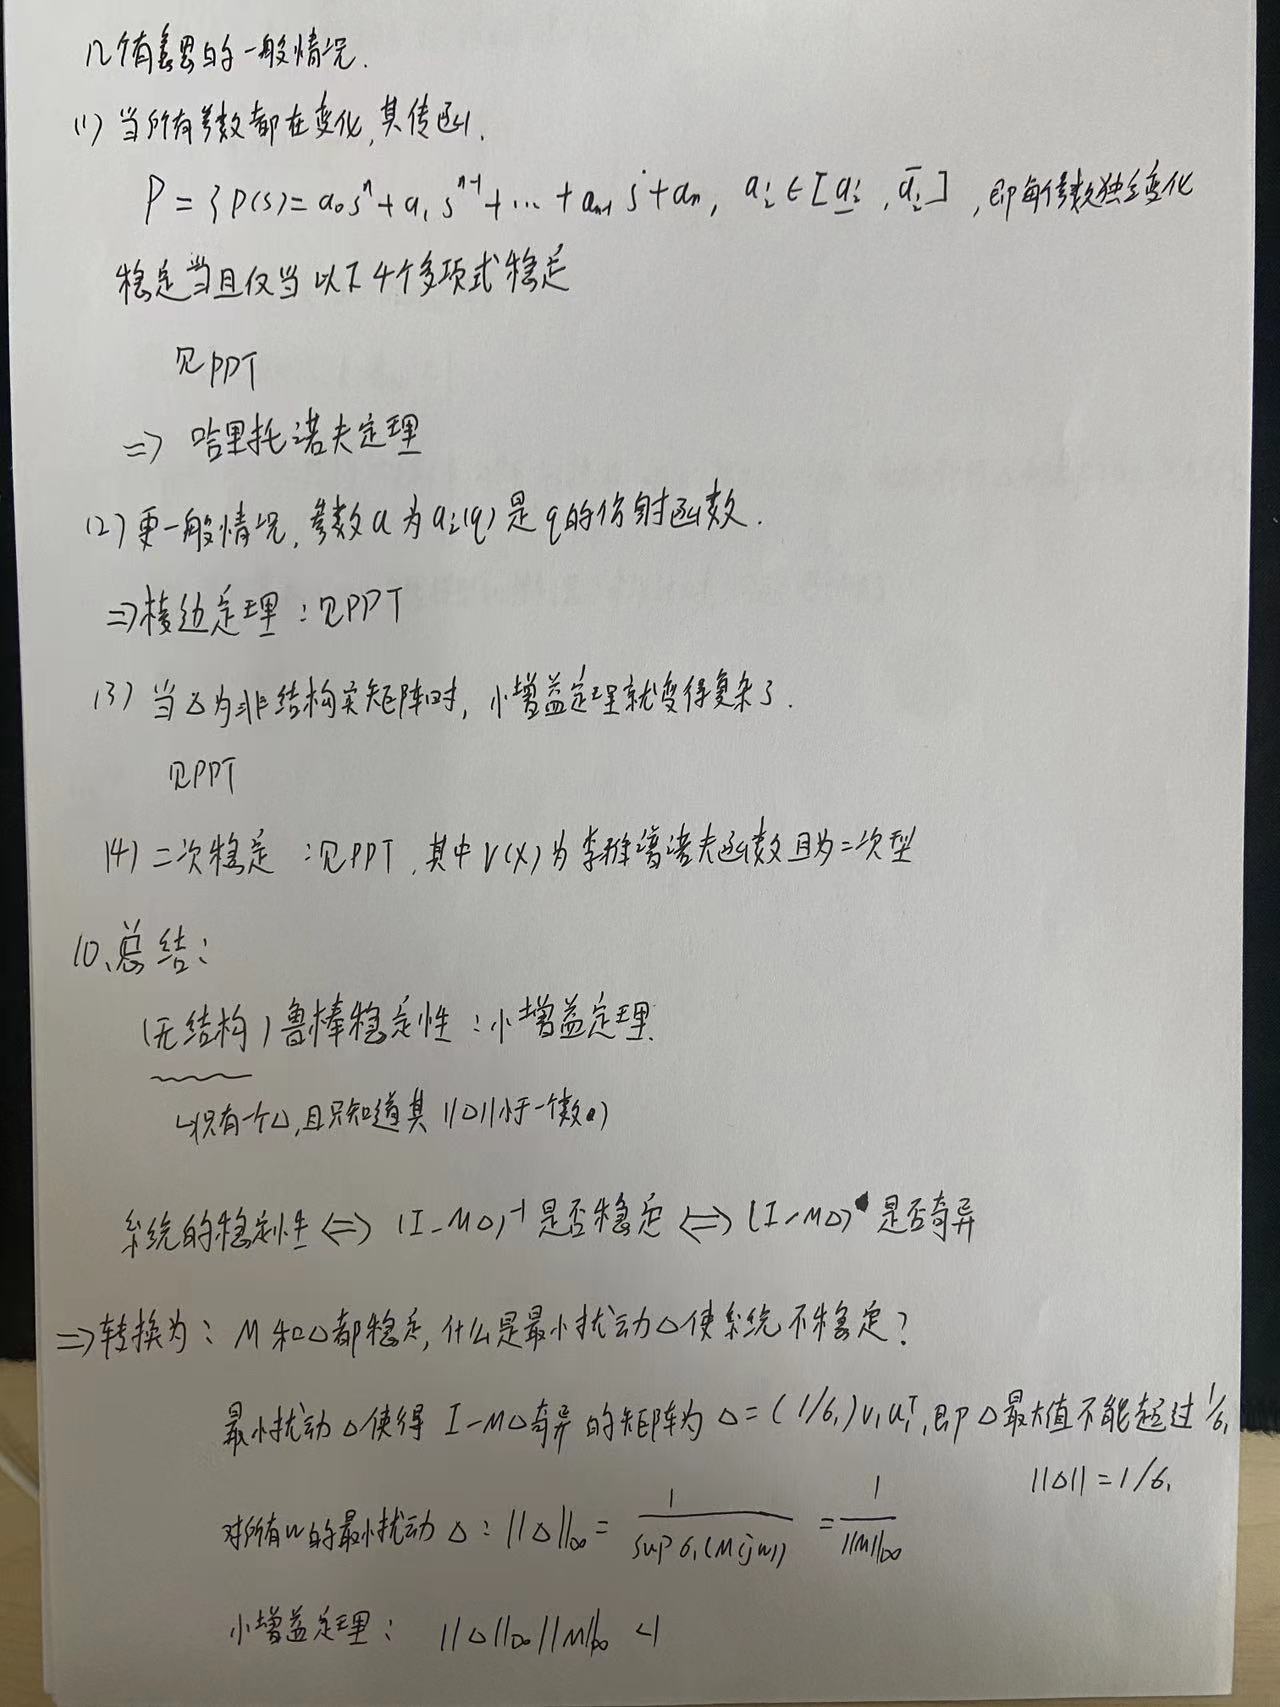 几个有意思的一般情况.
(1) 当所有参数都在变化,其传函.
P = { P(s) = a₀sⁿ + a₁sⁿ⁻¹ + … + aₙ₋₁ s + aₙ, aᵢ ∈ [a̲ᵢ, a̅ᵢ] , 即每个参数独立变化
稳定当且仅当以下4个多项式稳定
见PPT
=> 哈里托诺夫定理
(2) 更一般情况, 参数a为aᵢ(q)是q的仿射函数.
=> 棱边定理:见PPT
(3) 当△为非结构实矩阵时, 小增益定理就变得复杂了.
见PPT
(4) 二次稳定 :见PPT, 其中V(x)为李雅普诺夫函数且为二次型
10、总结:
(无结构) 鲁棒稳定性:小增益定理.
↳只有一个△,且只知道其||△||小于一个数)
系统的稳定性 <=> (I-M△)⁻¹ 是否稳定 <=> (I-M△) 是否奇异
=> 转换为: M和△都稳定, 什么是最小扰动△使系统不稳定?
最小扰动△使得 I-M△奇异的矩阵为 △ = (1/σ₁)v₁u₁ᵀ, 即△最大值不能超过1/σ₁
||△|| = 1/σ₁
对所有w的最小扰动△: ||△||∞ = 1/sup σ₁(M(jw)) = 1/||M||∞
小增益定理: ||△||∞||M||∞ <1